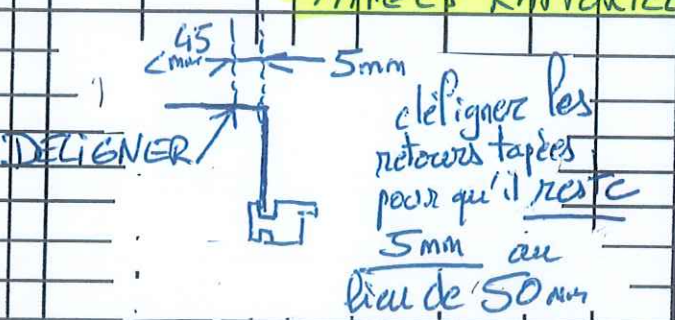 TAPÉES
45
mm
5mm
DELIGNER
déligner les
retours tapées
pour qu'il reste
5mm au
lieu de 50mm